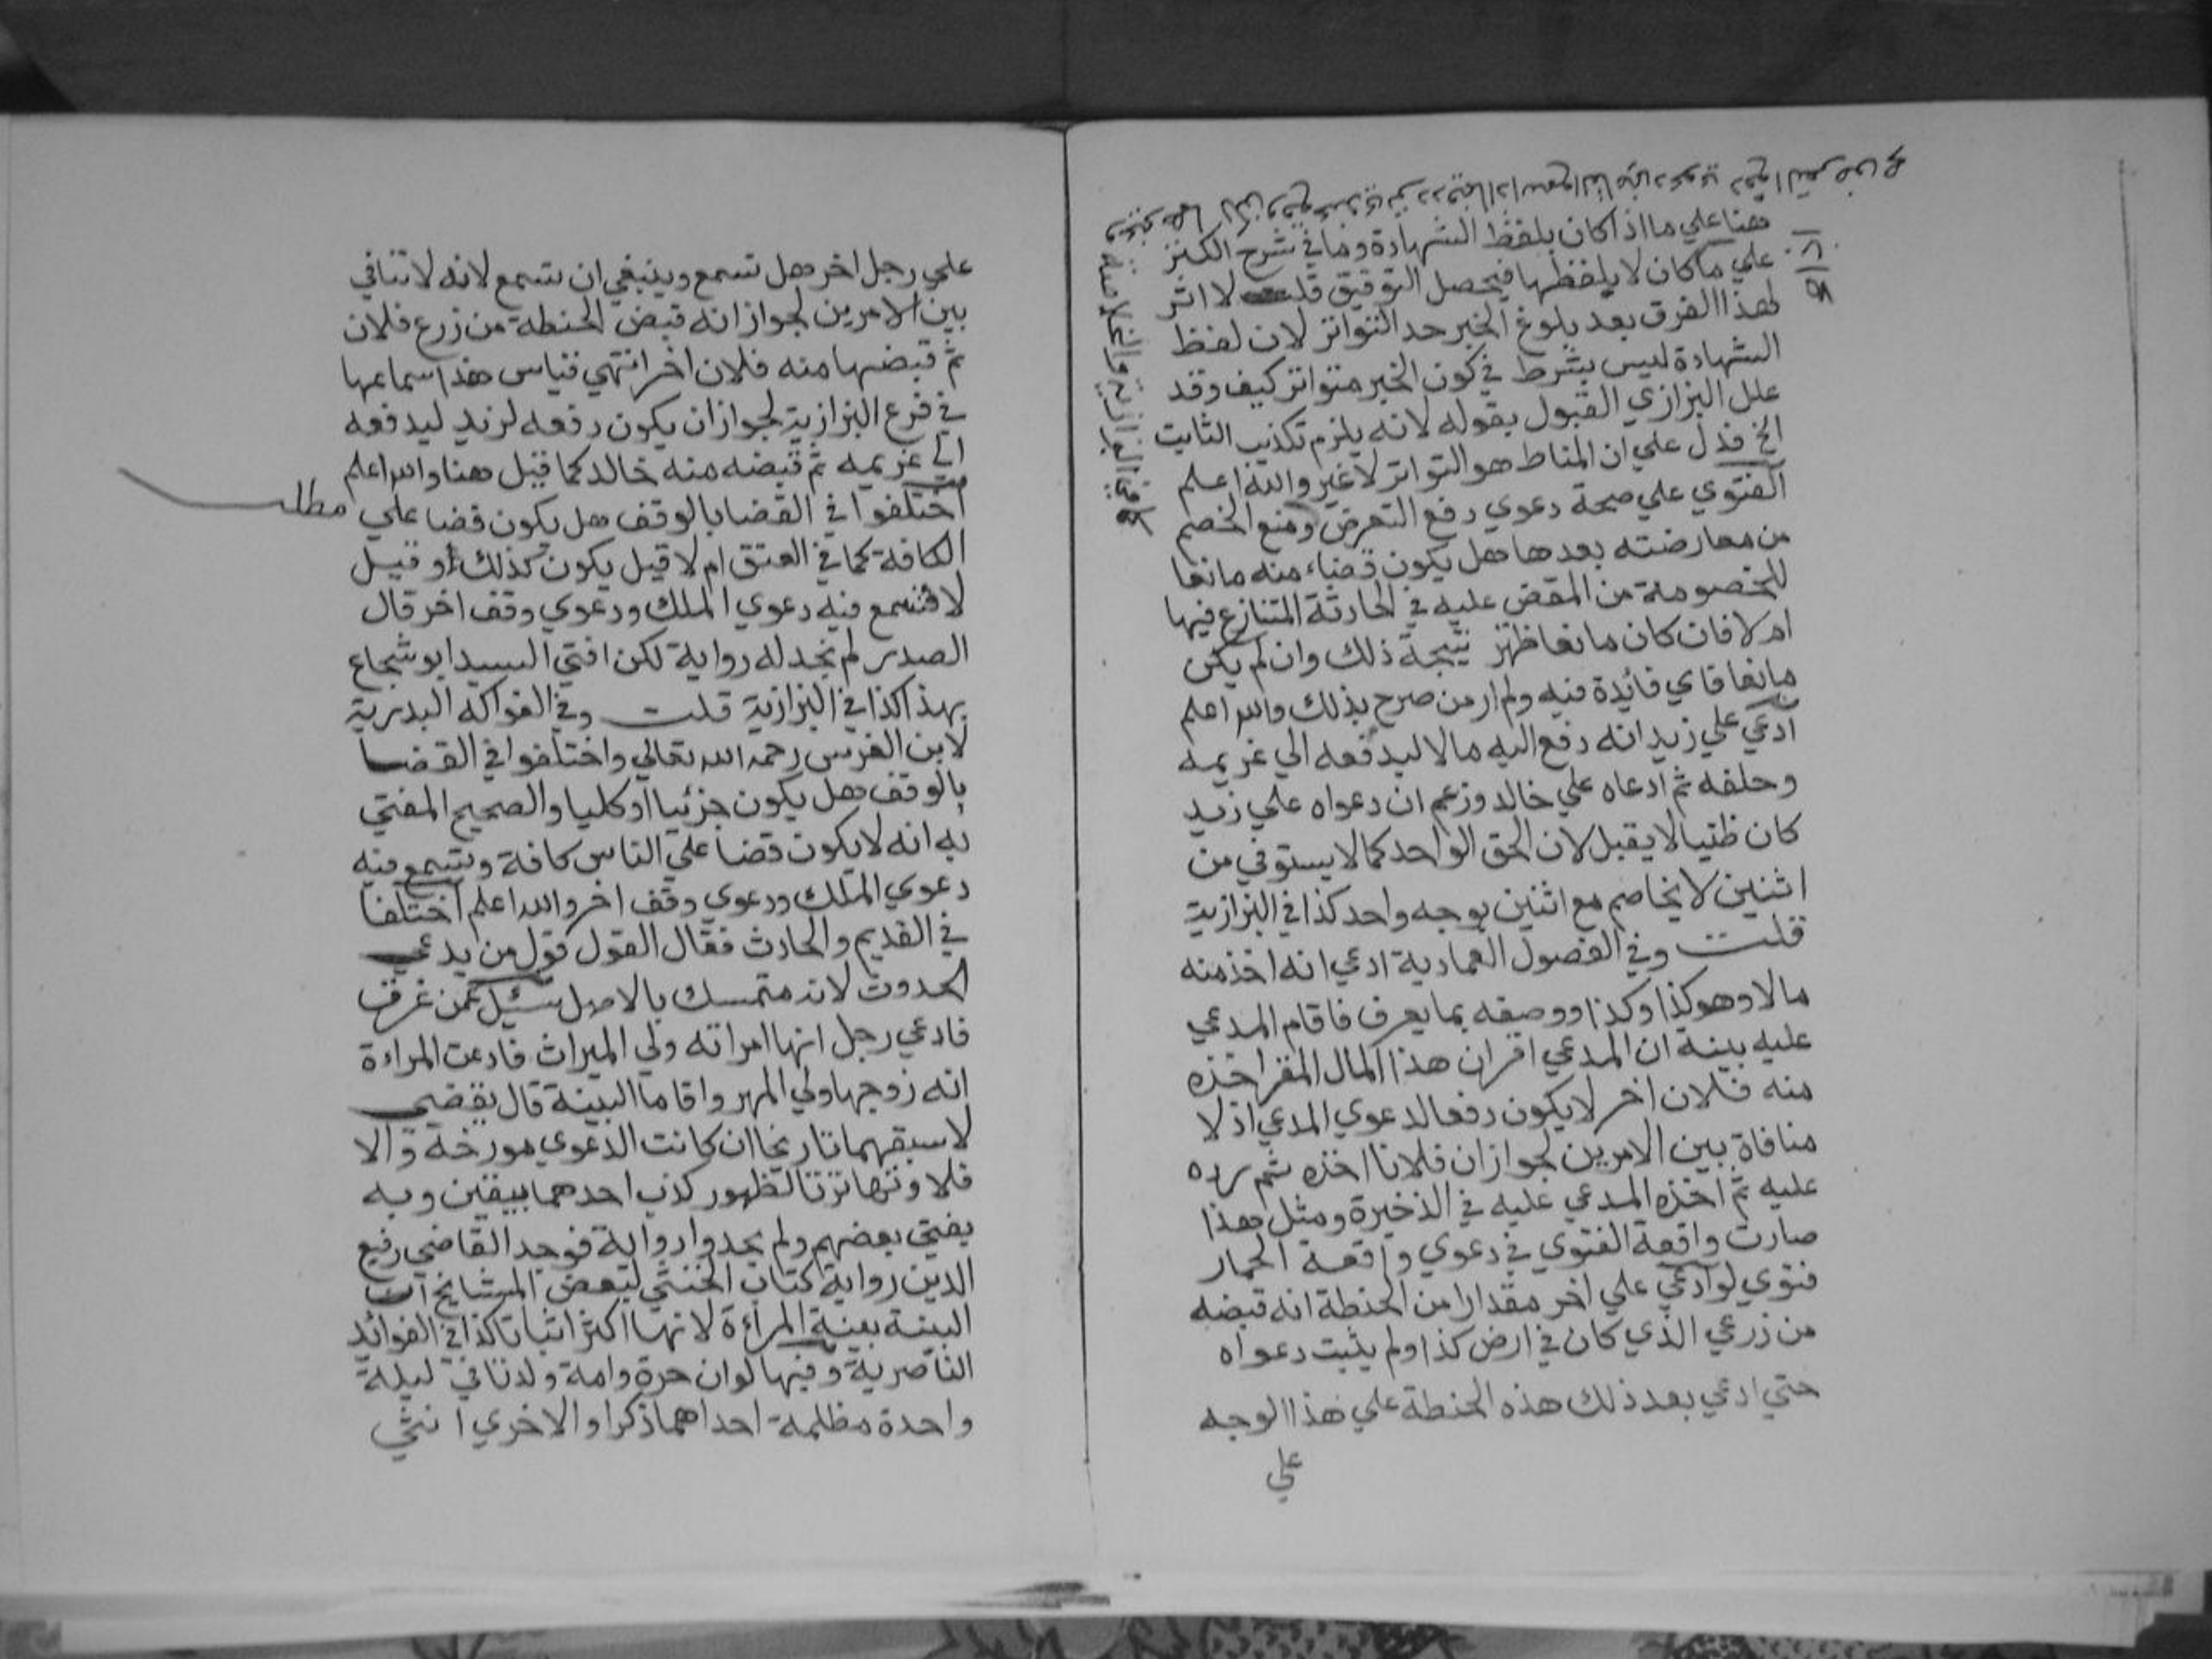 هنا علي ما اذا كان بلفظ الشهادة وما في شرح الكنز
علي ما كان لا بلفظها فيحصل التوفيق قلت لا اثر
لهذا الفرق بعد بلوغ الخبر حد التواتر لان لفظ
الشهادة ليس بشرط في كون الخبر متواتر كيف وقد
علل البزازي القبول بقوله لانه يلزم تكذيب الثابت
الخ فدل علي ان المناط هو التواتر لا غير والله اعلم
الفتوي علي صحة دعوي دفع التعرض ومنع الخصم
من معارضته بعدها هل يكون قضاء منه مانعا
للخصومة من المقض عليه في الحادثة المتنازع فيها
ام لا فان كان مانعا ظهر نتيجة ذلك وان لم يكن
مانعا فاي فائدة فيه ولم ار من صرح بذلك والله اعلم
ادعي علي زيد انه دفع اليه مالا ليدفعه الي غريمه
وحلفه ثم ادعاه علي خالد وزعم ان دعواه علي زيد
كان ظنيا لا يقبل لان الحق الواحد كما لا يستوفي من
اثنين لا يخاصم مع اثنين بوجه واحد كذا في البزازية
قلت وفي الفصول العمادية ادعي انه اخذ منه
مالا وهو كذا وكذا ووصفه بما يعرف فاقام المدعي
عليه بينة ان المدعي اقر ان هذا المال المقر اخذه
منه فلان اخر لا يكون دفعا لدعوي المدعي اذ لا
منافاة بين الامرين لجواز ان فلانا اخذه ثم رده
عليه ثم اخذه المدعي عليه في الذخيرة ومثل هذا
صارت واقعة الفتوي في دعوي واقعة الحمار
فتوي لو ادعي علي اخر مقدارا من الحنطة انه قبضه
من زرعي الذي كان في ارض كذا ولم يثبت دعواه
حتي ادعي بعد ذلك هذه الحنطة علي هذا الوجه
علي
علي رجل اخر هل تسمع وينبغي ان تسمع لانه لا تنافي
بين الامرين لجواز انه قبض الحنطة من زرع فلان
ثم قبضها منه فلان اخر انتهي قياس هذا سماعها
في فرع البزازية لجواز ان يكون دفعه لزيد ليدفعه
الي غريمه ثم قبضه منه خالد كما قيل هنا والله اعلم
اختلفوا في القضا بالوقف هل يكون قضا علي
مطلب
الكافة كما في العتق ام لا قيل يكون كذلك وقيل
لا فتسمع فيه دعوي الملك ودعوي وقف اخر قال
الصدر لم نجد له رواية لكن افتي السيد ابو شجاع
بهذا كذا في البزازية قلت وفي الفواكه البدرية
لابن الغرس رحمه الله تعالي واختلفوا في القضا
بالوقف هل يكون جزئيا او كليا والصحيح المفتي
به انه لا يكون قضا علي الناس كافة وتسمع فيه
دعوي الملك ودعوي وقف اخر والله اعلم اختلفا
في القديم والحادث فقال القول قول من يدعي
الحدوث لانه متمسك بالاصل سئيل عمن غرقت
فادعي رجل انها امراته ولي الميراث فادعت المراءة
انه زوجها ولي المهر واقاما البينة قال يقضي
لاسبقهما تاريخا ان كانت الدعوي مورخة والا
فلا وتهاترتا لظهور كذب احدهما بيقين وبه
يفتي بعضهم ولم يجدوا رواية فوجد القاضي رفيع
الدين رواية كتاب الخنثي لبعض المشايخ ان
البينة بينة المراءة لانها اكثر اثباتا كذا في الفوائد
الناصرية وفيها لو ان حرة وامة ولدتا في ليلة
واحدة مظلمة احداهما ذكرا والاخري انثي